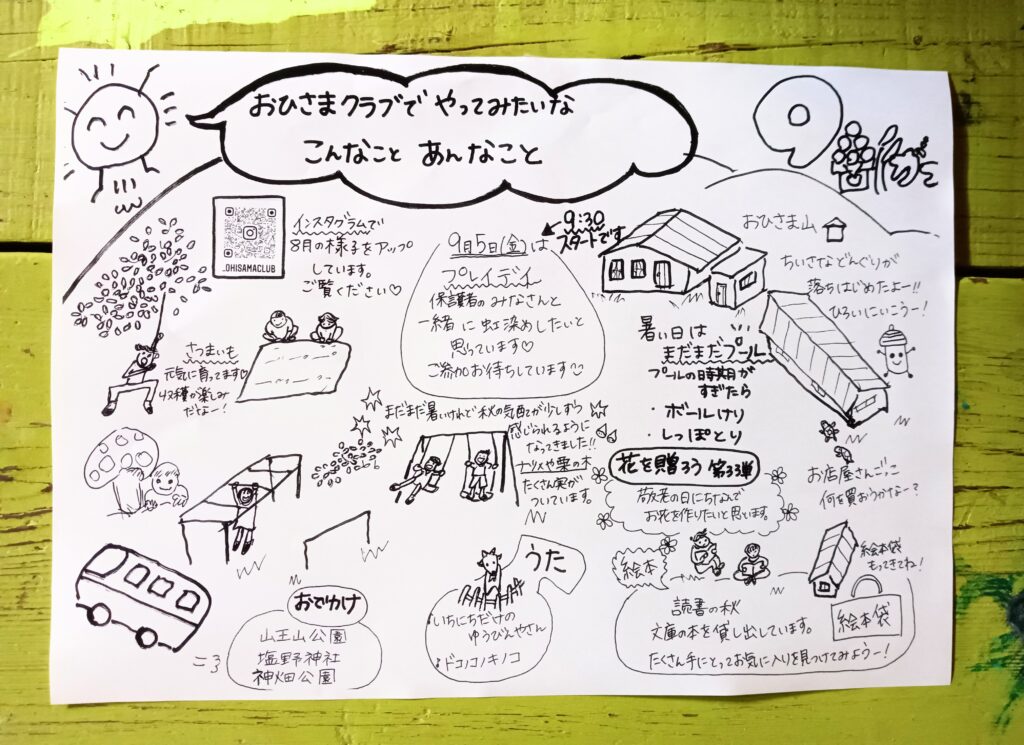 おひさまクラブで やってみたいな
こんなこと あんなこと
9
インスタグラムで
8月の様子をアップ
しています。
ご覧ください♡
.OHISAMACLUB
9:30
スタートです
9月5日(金)は
プレイデイ
保護者のみなさんと
一緒に虹染めしたいと
思っています♡
ご参加お待ちしています
おひさま山
ちいさなどんぐりが
落ちはじめたよー!!
ひろいにいこうー!
さつまいも
元気に育ってます♡
収穫が楽しみ
だなー!
暑い日は
まだまだプール
プールの時期が
すぎたら
・ボールけり
・しっぽとり
まだまだ暑いけれど秋の気配が少しずつ
感じられるように
なってきました!!
ナツメや栗の木
たくさん実が
ついています。
花を贈ろう 第33弾
敬老の日にちなんで
お花を作りたいと思います。
お店屋さんごこ
何を買おうかなー?
おでかけ
山王山公園
塩野神社
神畑公園
うた
♪いちにちだけの
ゆうびんやさん
♪ドコノコノキノコ
絵本
読書の秋
文庫の本を貸し出しています。
たくさん手にとってお気に入りを見つけてみようー!
絵本袋
もってきてね!
絵本袋